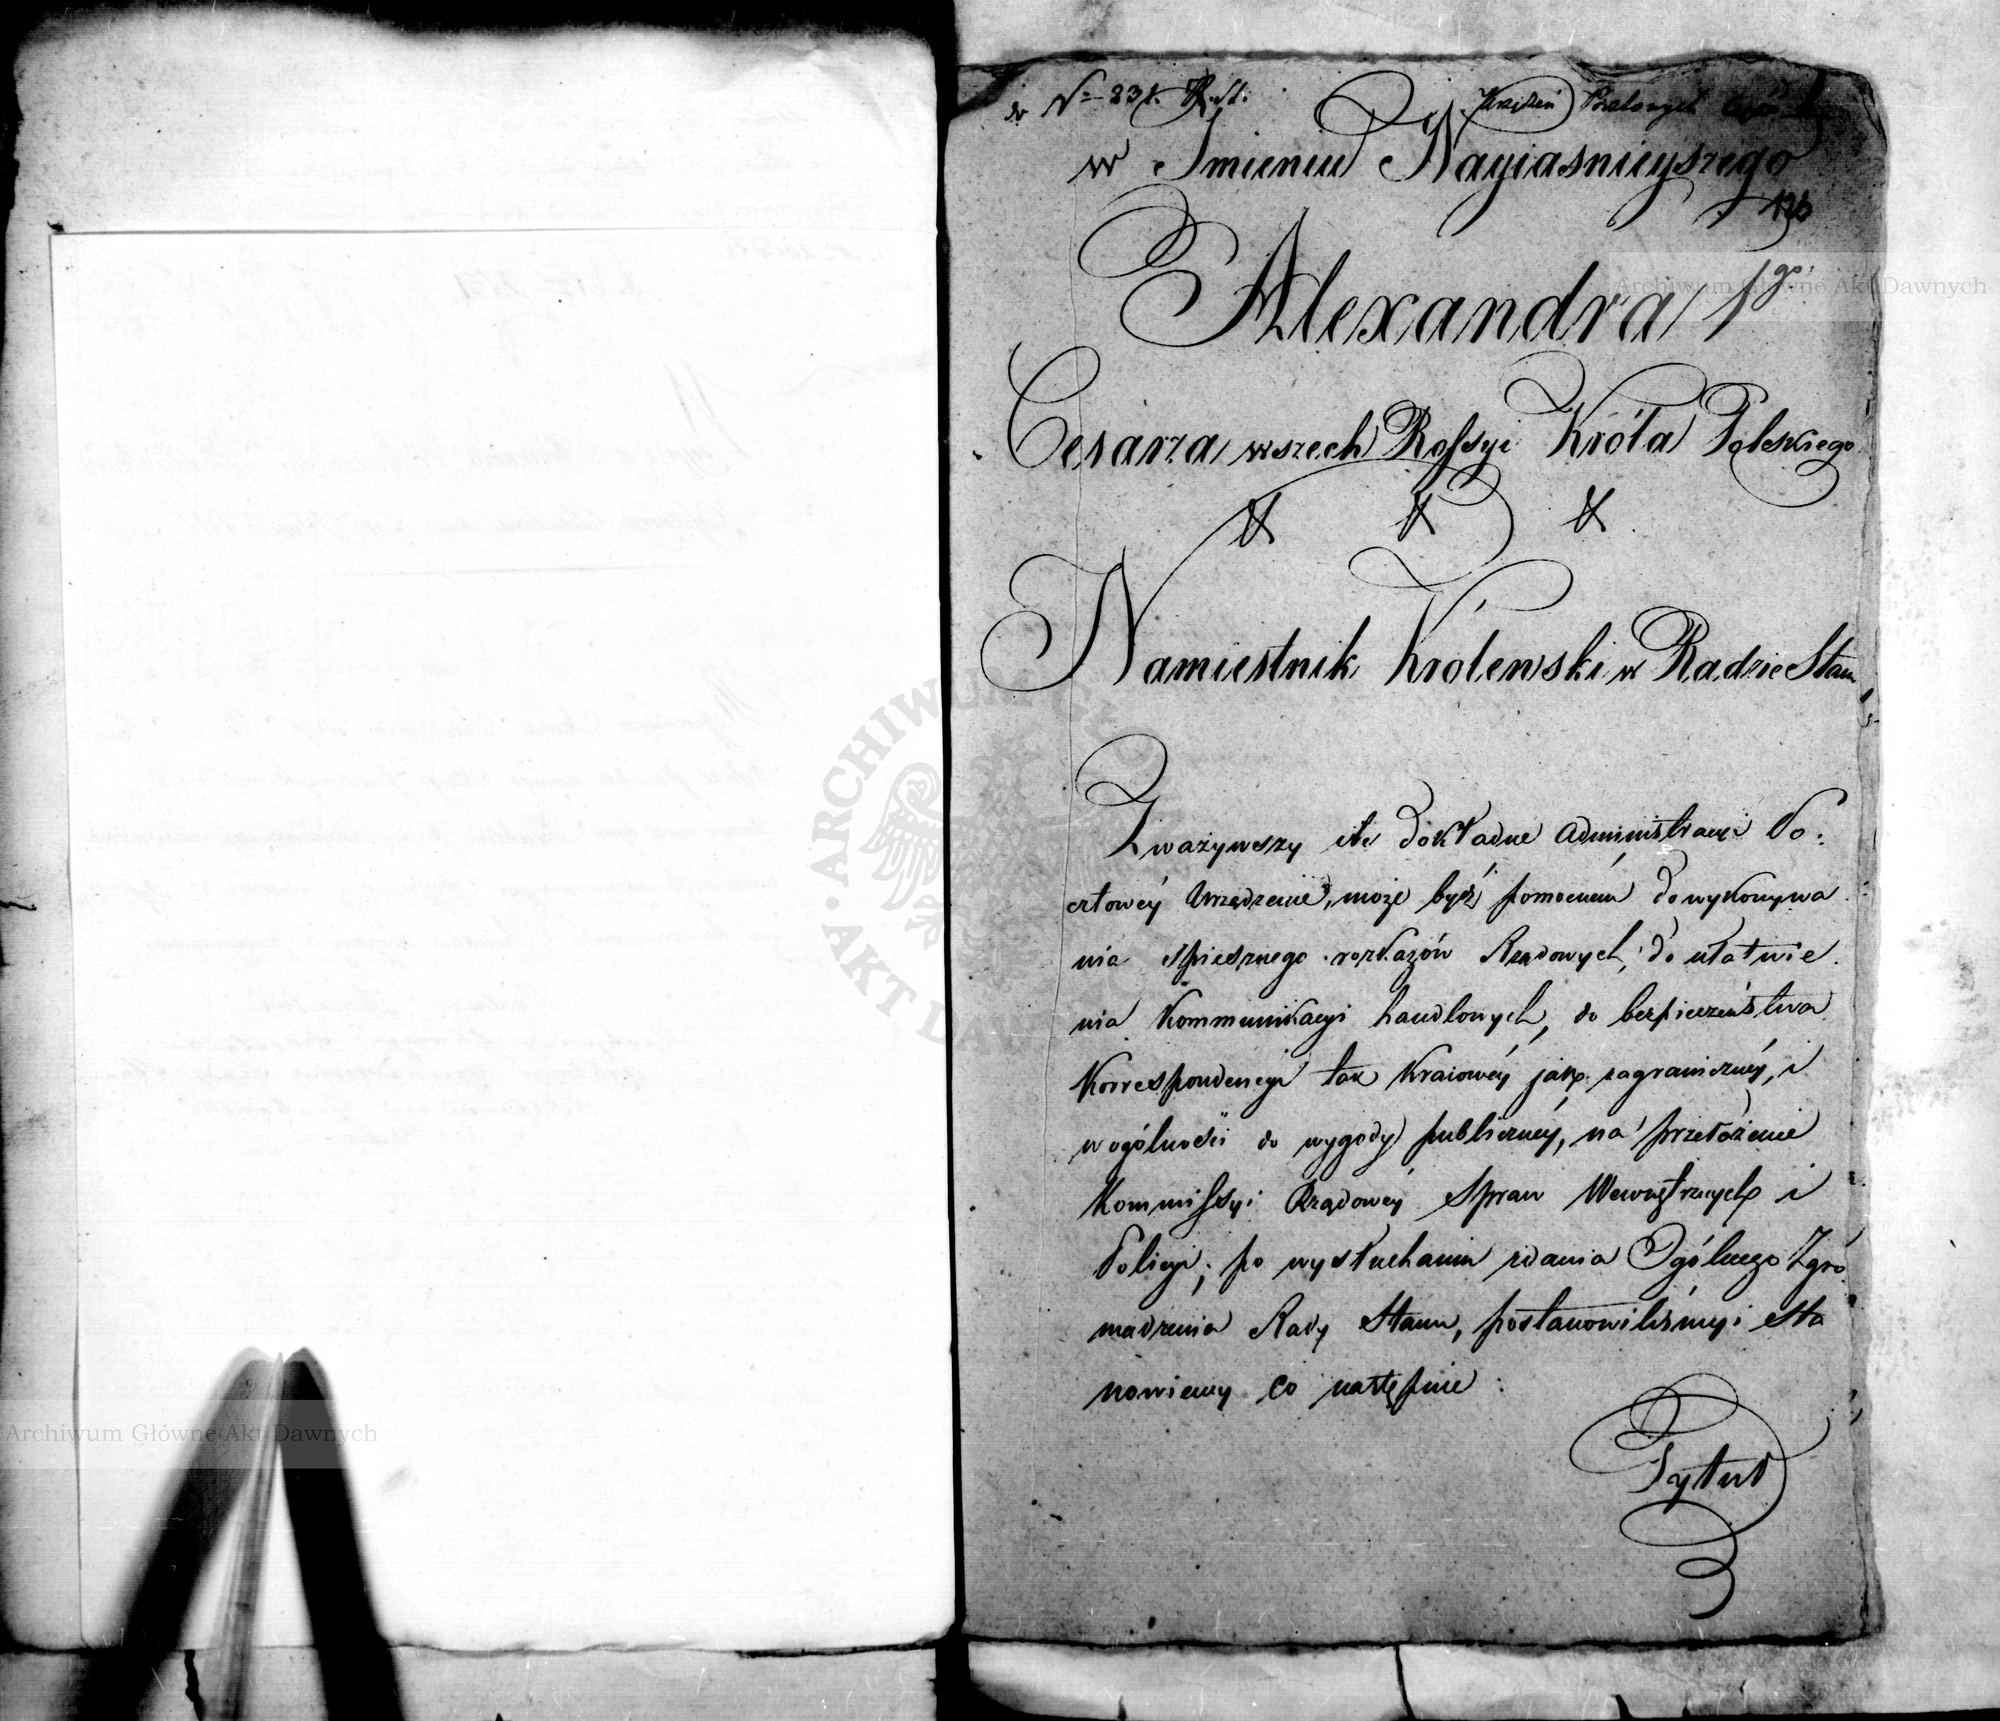 do N= 831. R. St.
Urządzeń Pocztowych
w Imieniu Nayiaśnieyszego
136
Alexandra 1go.
Cesarza wszech Rossyi Króla Polskiego
& & &
Namiestnik Królewski w Radzie Stanu
Zważywszy ile dokładne administracyi Po:
cztowéy Urządzenie, może bydź pomocném do wykonywa
nia spiesznego rozkazów Rządowych, do ułatwie.
nia Kommunikacyi handlowych, do bezpieczeństwa
Korrespondencyi tak Kraiowéy jako zagraniczney, i
w ogólności do wygody publiczney, na przełożenie
Kommissyi Rządowey Spraw Wewnętrznych i
Policyi; po wysłuchaniu zdania Ogólnego Zgro
madzenia Rady Stanu, postanowiliśmy i sta
nowiemy co następnie:
Tytuł
Archiwum Główne Akt Dawnych
Archiwum Główne Akt Dawnych